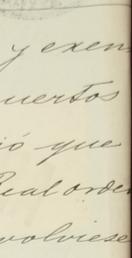 y exen
uertos
ió que
Real orde
volviese